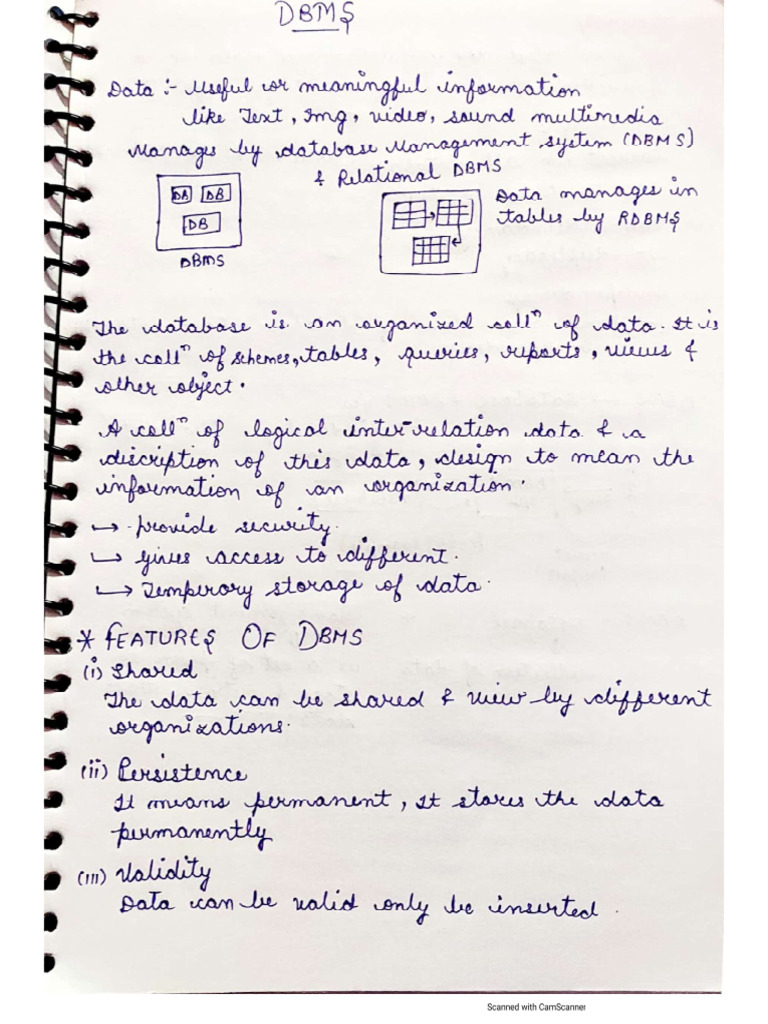 DBMS
Data :- Useful or meaningful information
like Text, Img, video, sound multimedia
Manages by database Management system (DBMS)
& Relational DBMS
DB DB
DB
DBMS
Data manages in
tables by RDBMS
The database is an organized collⁿ of data. It is
the collⁿ of schemes, tables, queries, reports, views &
other object.
A collⁿ of logical inter-relation data & a
discription of this data, design to mean the
information of an organization.
→ provide security.
→ gives access to different.
→ Tempirory storage of data.
* FEATURES OF DBMS
(i) Shared
The data can be shared & view by different
organizations.
(ii) Persistence
It means permanent, It stores the data
permanently
(iii) Validity
Data can be valid only be inserted.
Scanned with CamScanner